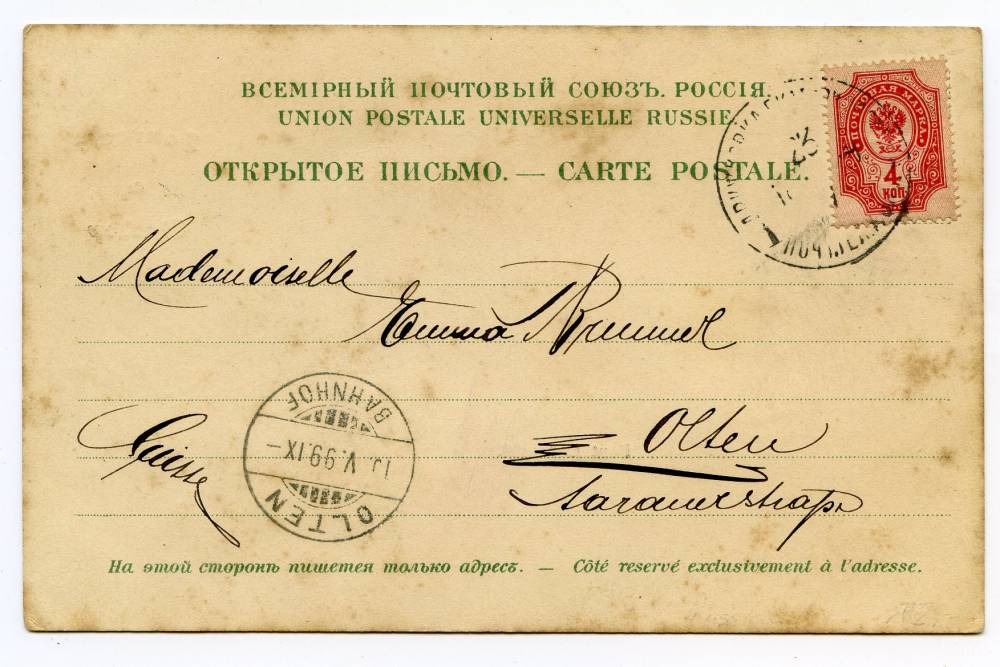 ВСЕМІРНЫЙ ПОЧТОВЫЙ СОЮЗЪ. РОССІЯ.
UNION POSTALE UNIVERSELLE RUSSIE.
ОТКРЫТОЕ ПИСЬМО. — CARTE POSTALE.
ПОЧТОВАЯ МАРКА
4
КОП
Mademoiselle
Emma
Olten
Suisse
Aarauerstraße
OLTEN
V.99.IX-
BAHNHOF
На этой сторонѣ пишется только адресъ. — Côté reservé exclusivement à l'adresse.